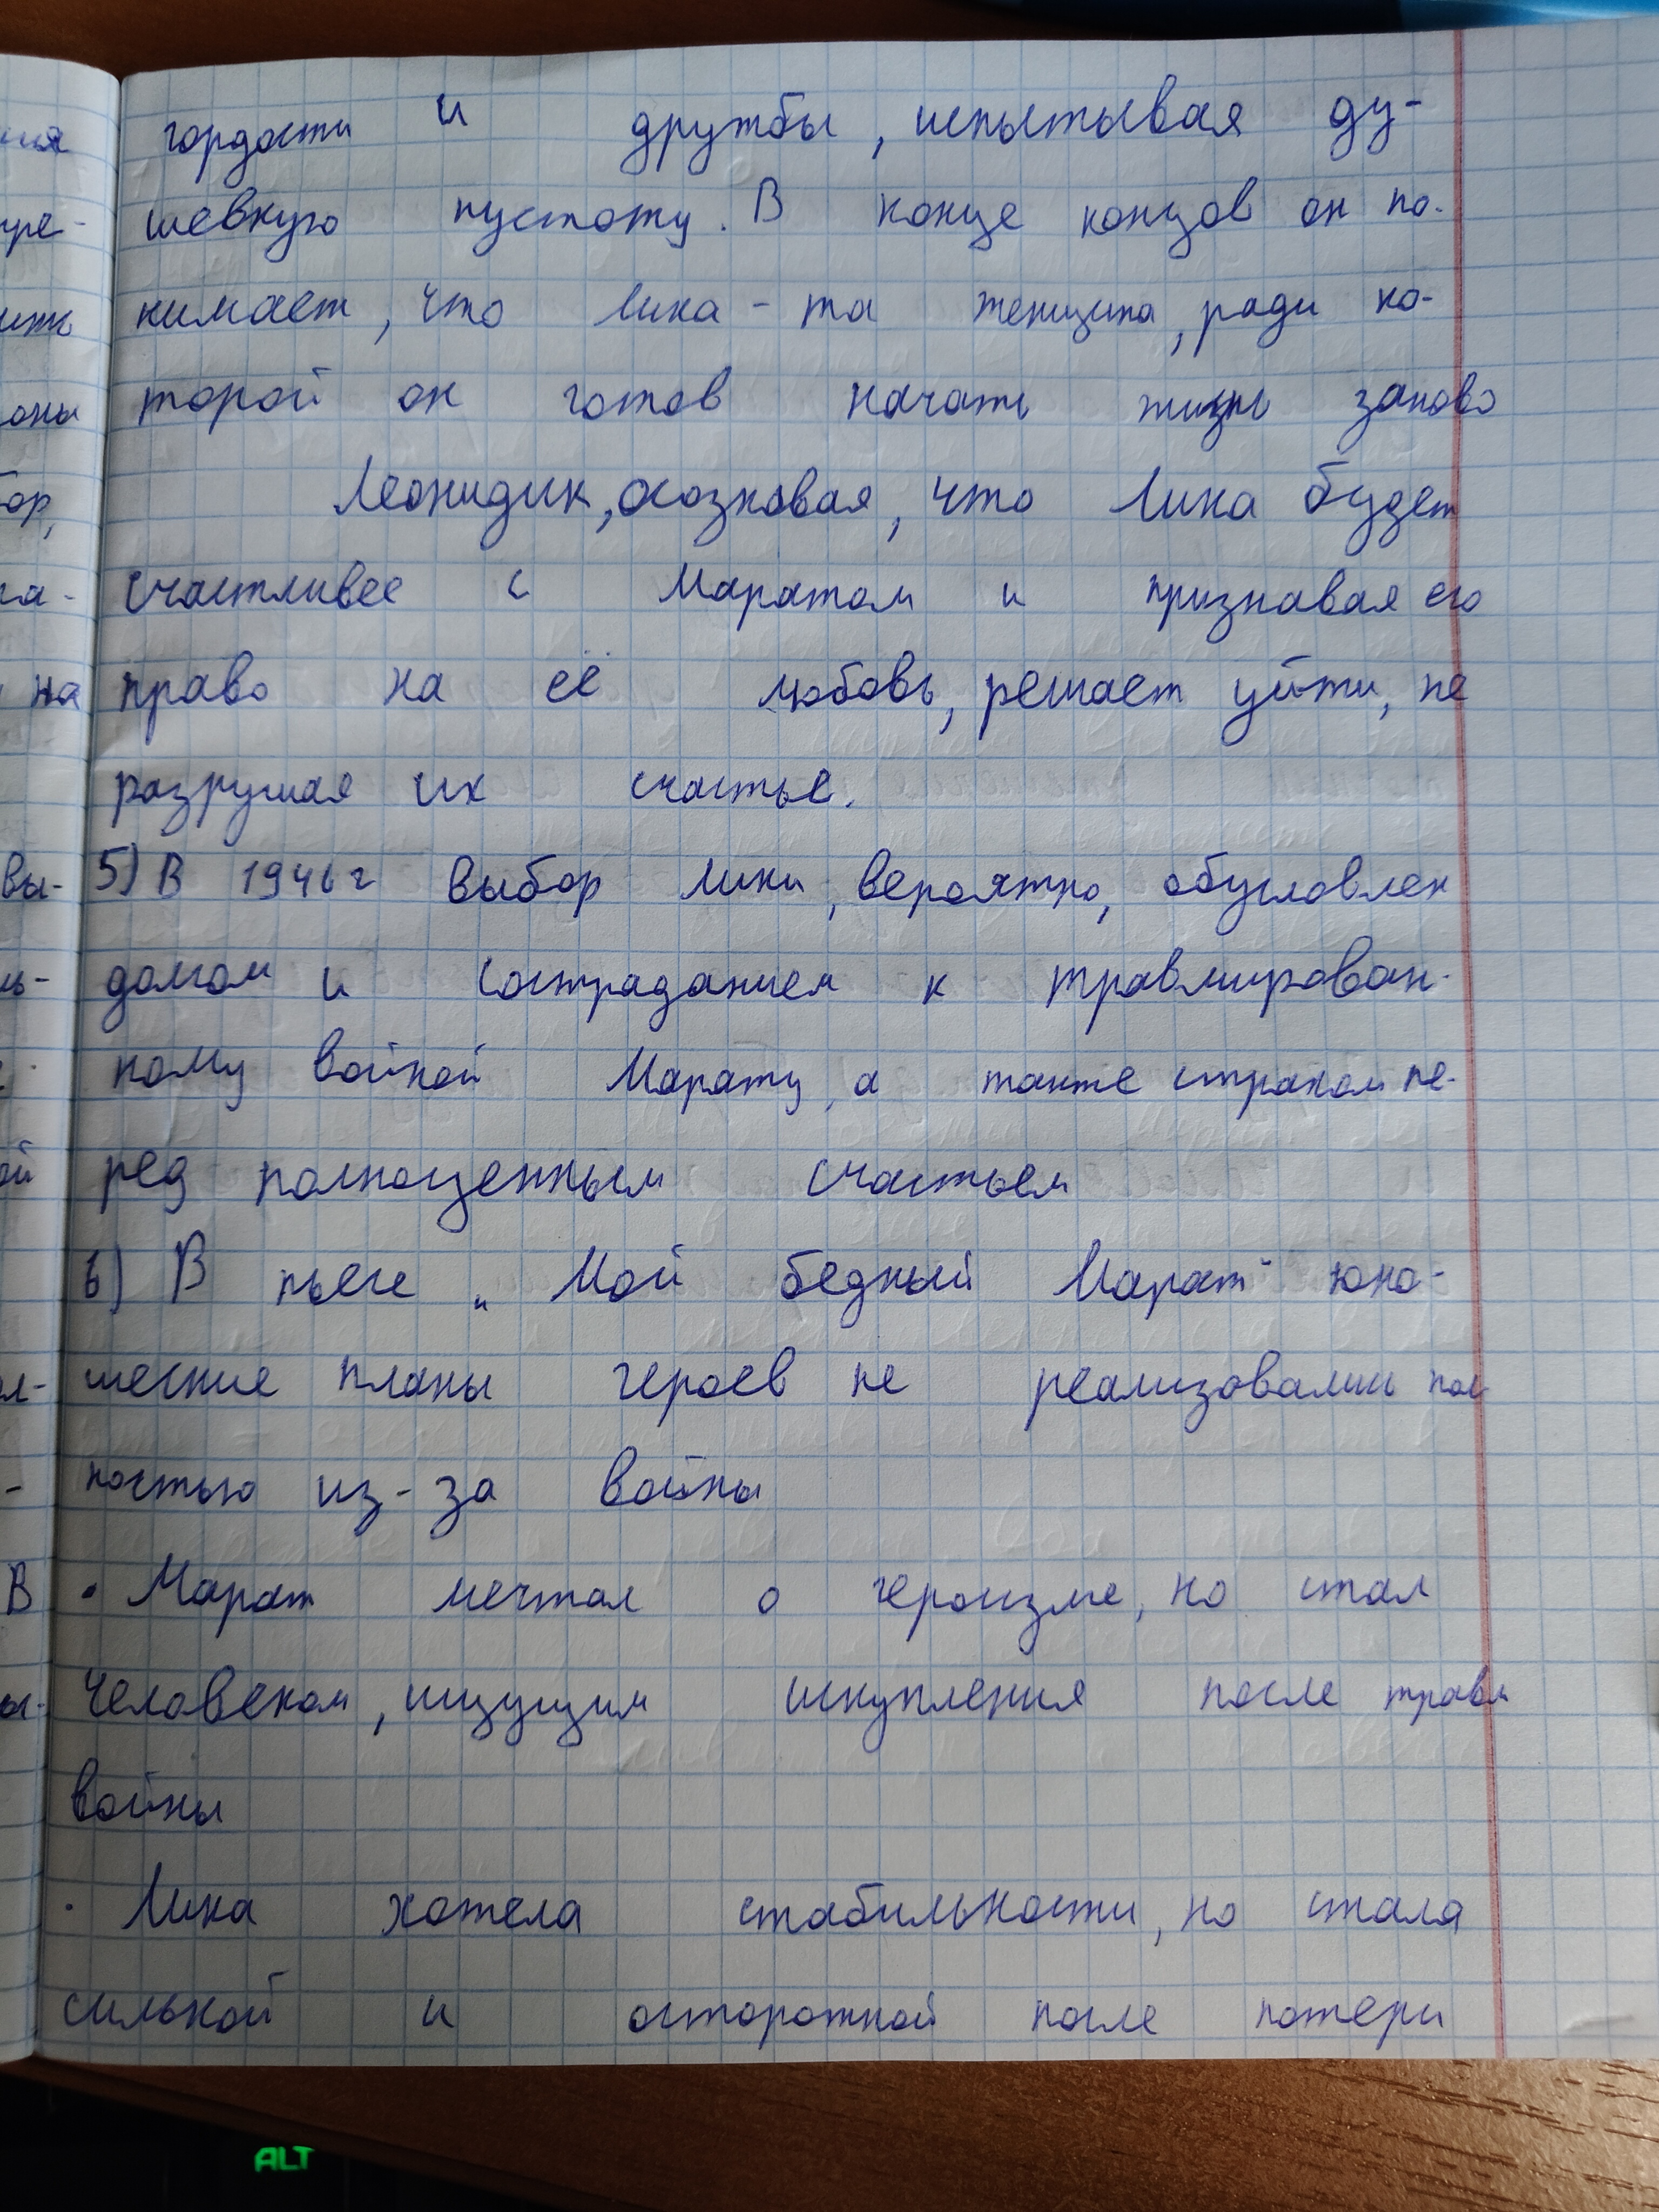 гордости и дружбы, испытывая ду-
шевную пустоту. В конце концов он по-
нимает, что Лика - та женщина, ради ко-
торой он готов начать жизнь заново
Леонидик, осознавая, что Лика будет
счастливее с Маратом и признавая его
право на её любовь, решает уйти, не
разрушая их счастье.
5) В 1946г выбор Лики, вероятно, обусловлен
долгом и состраданием к травмирован-
ному войной Марату, а также страхом пе-
ред полноценным счастьем
6) В пьесе „Мой бедный Марат" юно-
шеские планы героев не реализовались пол
ностью из-за войны
• Марат мечтал о героизме, но стал
человеком, ищущим искупления после травм
войны
• Лика хотела стабильности, но стала
сильной и осторожной после потери
ALT